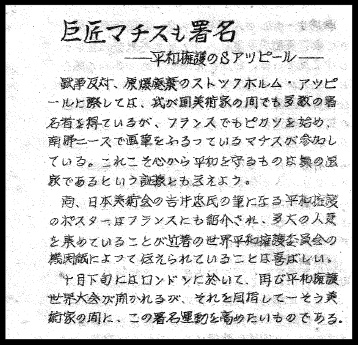 巨匠マチスも署名
――平和擁護のアッピール――
戦争反対、原爆廃棄のストックホルム・アッピ
ールに際しては、我が国美術家の間でも多数の署
名者を得ているが、フランスでもピカソを始め、
南部ニースで画筆をふるっているマチスが参加し
ている。これこそ心から平和を守るものは無の国
家であるという証拠とも言えよう。
尚、日本美術会の吉井忠氏の筆になる平和擁護
のポスターはフランスにも紹介され、多大の人気
を集めていることが近着の世界平和擁護委員会の
機関紙によって伝えられていることは喜ばしい。
十月下旬にはロンドンに於いて、再び平和擁護
世界大会が開かれるが、それを目指して一そう美
術家の間に、この署名運動を高めたいものである。